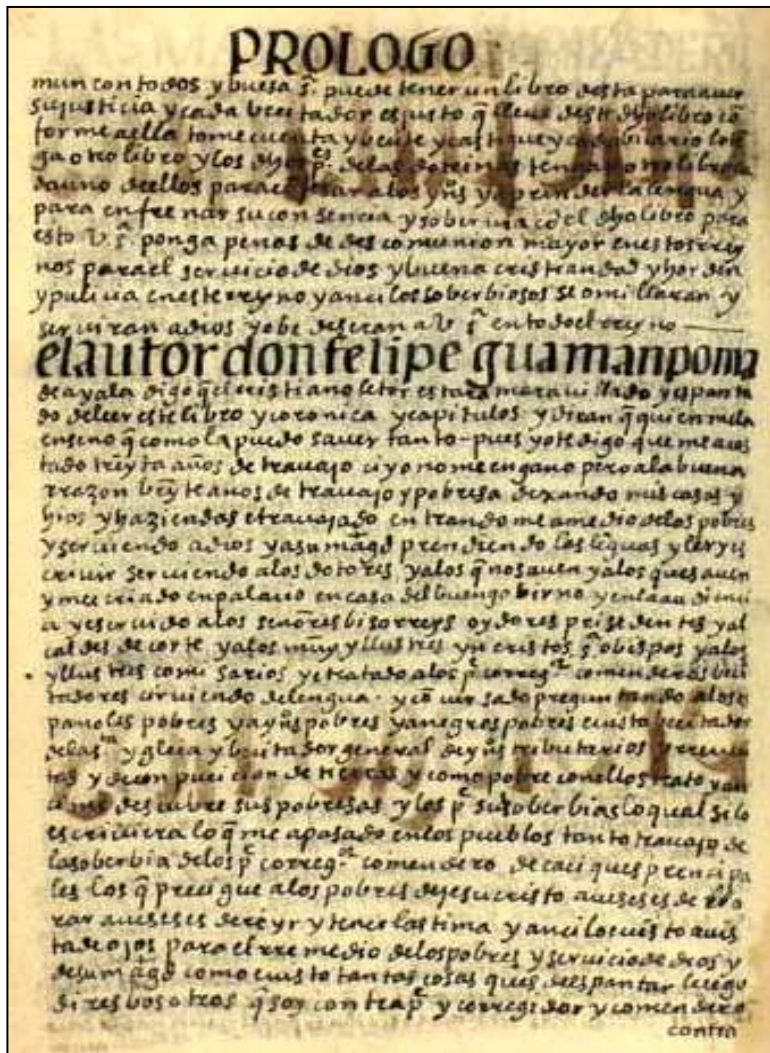 PROLOGO
mun con todos y buesa s̃. puede tener un libro desta para auer
su justicia y cada becitador es justo q̃ lleue deste dho libro cō
forme a ella tome cuenta y bicite y castigue y cada bicario loten
ga otro libro y los dhos p.es de las dotrinas tenga otro libro ca
da uno dellos para confesar a los ynºs y aprinder la lengua y
para enfrenar su consencia y soberuia cō el dho libro para
esto V. s̃. ponga penas de descomunion mayor en estos rrey
nos para el seruicio de dios y buena cristiandad y horden
y pulicia en este rreyno y anci los soberbiosos se omillaran y
seruiran a dios y obedeseran a V. s̃. en todo el rreyno
el autor don felipe guamanpoma
de ayala digo q̃ el cristiano letor estara marauillado y espanta
do de leer este libro y coronica y capitulos y diran q̃ quien me la
enseno q̃ como la puedo sauer tanto - pues yo te digo que me a cos
tado treynta años de trauajo ci yo no me engano pero a la buena
rrazon beynte anos de trauajo y pobresa dexando mis casas y
hijos y haziendas e trauajado entrandome a medio de los pobres
y seruiendo a dios y a su mag.d prendiendo las lẽguas y leer y es
criuir seruiendo a los dotores y a los q̃ no sauen y a los que sauen
y me e criado en palacio en casa del buen gobierno y en la audienci
a y e seruido a los señores bisorreys oydores presedentes y al
caldes de corte y a los muy yllustres yn cristos s̃. obispos y a los
yllustres comisarios y e tratado a los p.es correg.or comenderos beci
tadores ciruiendo de lengua. y cō uersado preguntando a los es
panoles pobres y a ynºs pobres y a negros pobres e uisto becitador
de la s.ta yglecia y becitador general de ynºs tributarios y rreuici
tas y de conpucicion de tierras y como pobre con ellos trato y an
ci me descubre sus pobresas y los p.es sus soberbias lo qual si lo
escriuiera lo q̃ me a pasado en los pueblos tanto trauajo de
la soberbia de los p.es correg.or comendero de caciques prencipa
les los q̃ precigue a los pobres de jesucristo aueseses de llo
rar aueseses de reyr y tener lastima y anci lo e uisto a uis
ta de ojos para el rremedio de los pobres y seruicio de dios y
de su mag.d como e uisto tantas cosas ques de espantar luego
dires bosotros q̃ soy contra p.e y corregidor y comendero
contra